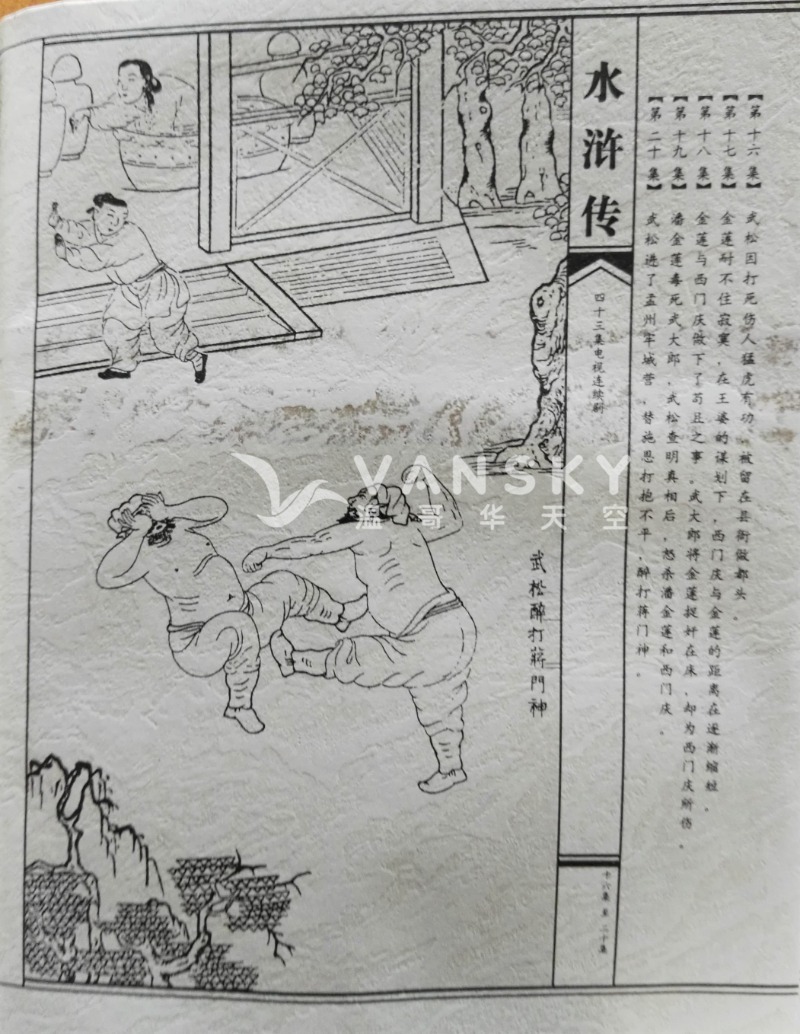 【第十六集】 武松因打死伤人猛虎有功,被留在县衙做都头。
【第十七集】 金莲耐不住寂寞,在王婆的谋划下,西门庆与金莲的距离在逐渐缩短。
【第十八集】 金莲与西门庆做下了苟且之事。武大郎将金莲捉奸在床,却为西门庆所伤。
【第十九集】 潘金莲毒死武大郎,武松查明真相后,怒杀潘金莲和西门庆。
【第二十集】 武松进了孟州牢城营,替施恩打抱不平,醉打蒋门神。
水浒传
四十三集电视连续剧
十六集 至 二十集
武松醉打蔣門神
VANSKY
温哥华天空